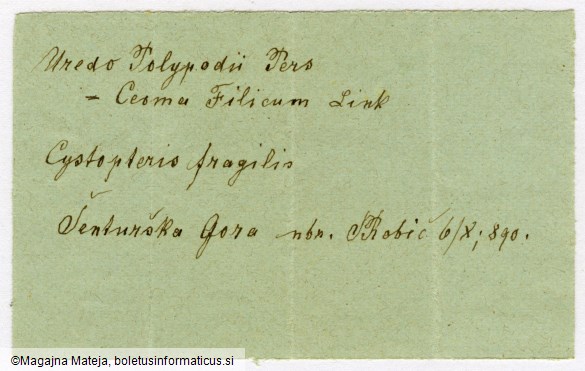 Uredo Polypodii Pers
= Ceoma Filicum Link
Cystopteris fragilis
Šenturška Gora nbr. SRobič 6/X; 890.
©Magajna Mateja, boletusinformaticus.si